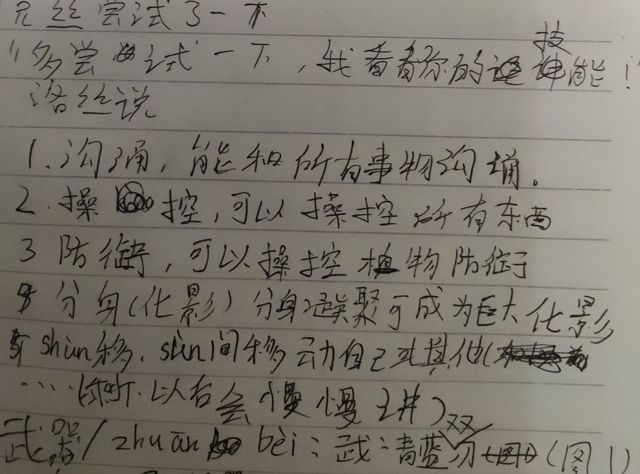 丝尝试了一下
“多尝试一下，我看看你的技能！
洛丝说
1.沟通，能和所有事物沟通。
2.操控，可以操控所有东西
3 防御，可以操控植物防御
4 分身（化影）分身误聚可成为巨大化影
5 shùn移.shùn间移动自己或其他（
……以后会慢慢讲）
武器/zhuāng bèi：武：青蓝双刃（图1）